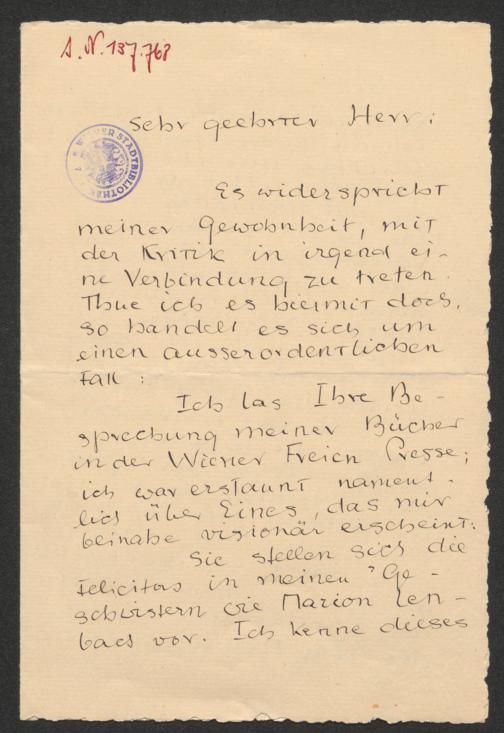 I. N. 137.768
Sehr geehrter Herr:
WIENER STADTBIBLIOTHEK
Es widerspricht
meiner Gewohnheit, mit
der Kritik in irgend ei-
ne Verbindung zu treten.
Thue ich es hiermit doch,
so handelt es sich um
einen ausserordentlichen
Fall:
Ich las Ihre Be-
sprechung meiner Bücher
in der Wiener Freien Presse;
ich war erstaunt nament-
lich über Eines, das mir
beinahe visionär erscheint:
Sie stellen sich die
Felicitas in meinen "Ge-
schwistern wie Marion Len-
bach vor. Ich kenne dieses